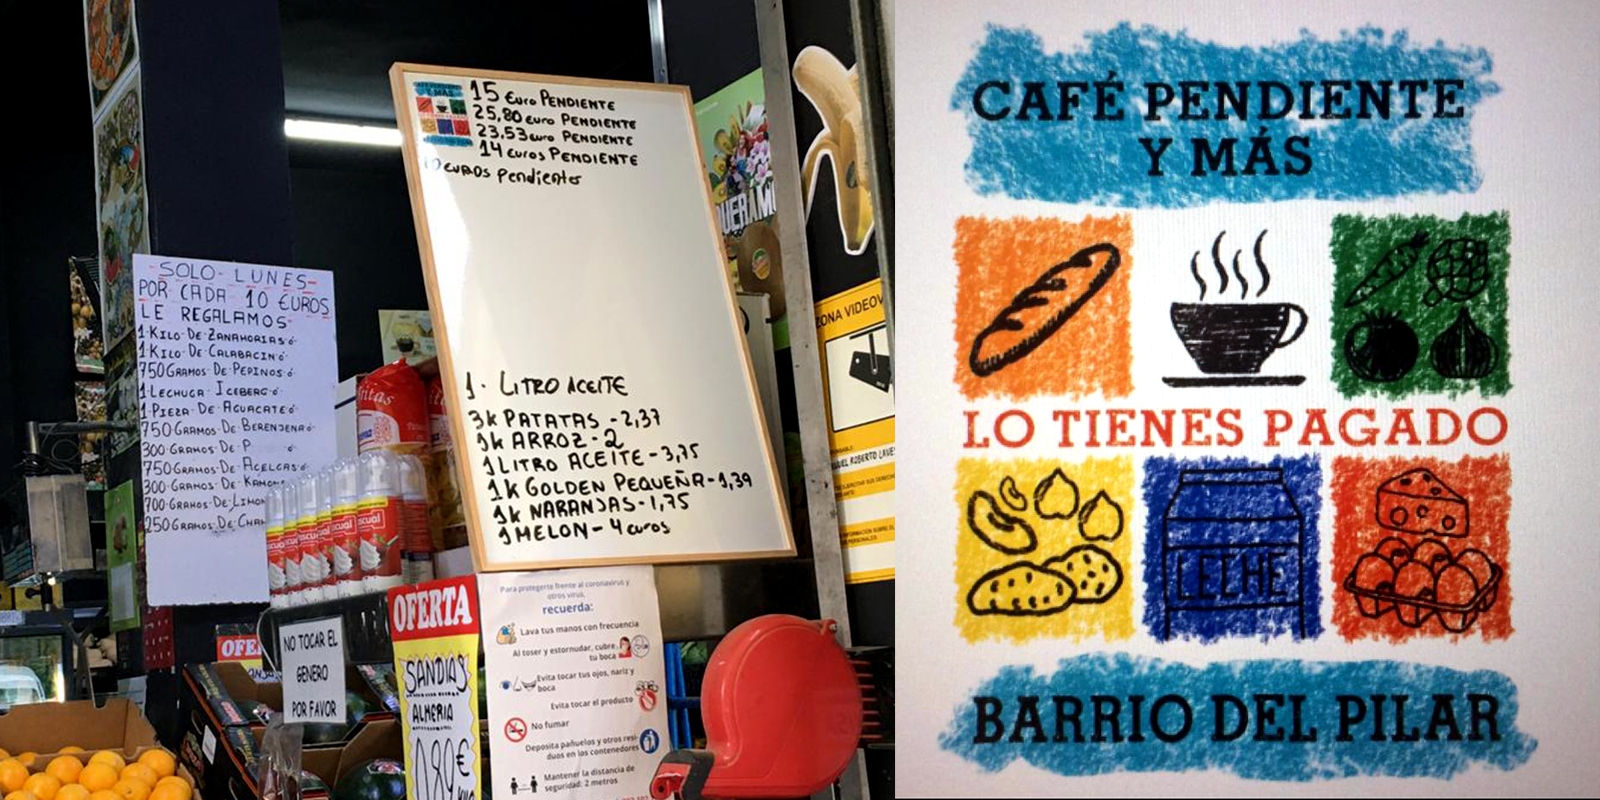 SOLO - LUNES-
POR CADA 10 €UROS
LE REGALAMOS-
1-KILO-DE-ZANAHORIAS-ó-
1-KILO-DE-CALABACIN-ó-
750GRAMOS-DE-PEPINOS-ó
1-LECHUGA-ICEBERG-ó
1-PIEZA-DE-AGUACATE-ó
750-GRAMOS-DE-BERENJENA-ó
300-GRAMOS-DE-P
750-GRAMOS-DE-ACELGAS-ó
300-GRAMOS-DE-
700-GRAMOS-DE-LIMON
250GRAMOS-DE-CHAM
15 €uro PENDIENTE
25,80 euro PENDIENTE
23,53 euro PENDIENTE
14 €uros PENDIENTE
€UROS Pendientes
1· LITRO ACEITE
3k PATATAS - 2,37
1k ARROZ - 2
1 LITRO ACEITE - 3,75
1k GOLDEN PEQUEÑA - 1,39
1k NARANJAS - 1,75
1 MELON - 4 €uros
ZONA VIDEOV
OFE
NO TOCAR EL
GENERO
POR FAVOR
OFERTA
SANDIAS
ALMERIA
0,89€
Para protegerte frente al coronavirus y
otros virus,
recuerda:
Lava tus manos con frecuencia
Al toser y estornudar, cubre
tu boca
Evita tocar tus ojos, nariz y
boca
Evita tocar el producto
No fumar
Deposita pañuelos y otros resi-
duos en los contenedores
Mantener la distancia de
seguridad: 2 metros
CAFÉ PENDIENTE
Y MÁS
LO TIENES PAGADO
LECHE
BARRIO DEL PILAR